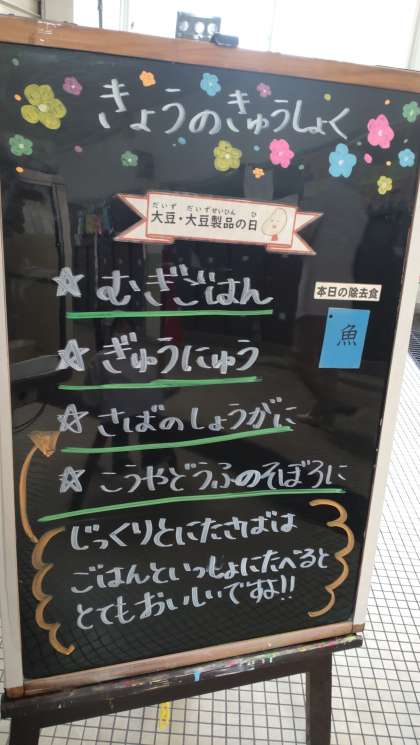 きょうのきゅうしょく
だいず だいずせいひん ひ
大豆・大豆製品の日
☆ むぎごはん
本日の除去食
魚
☆ ぎゅうにゅう
☆ さばのしょうがに
☆ こうやどうふのそぼろに
じっくりとにたさばは
ごはんといっしょにたべると
とてもおいしいですよ!!